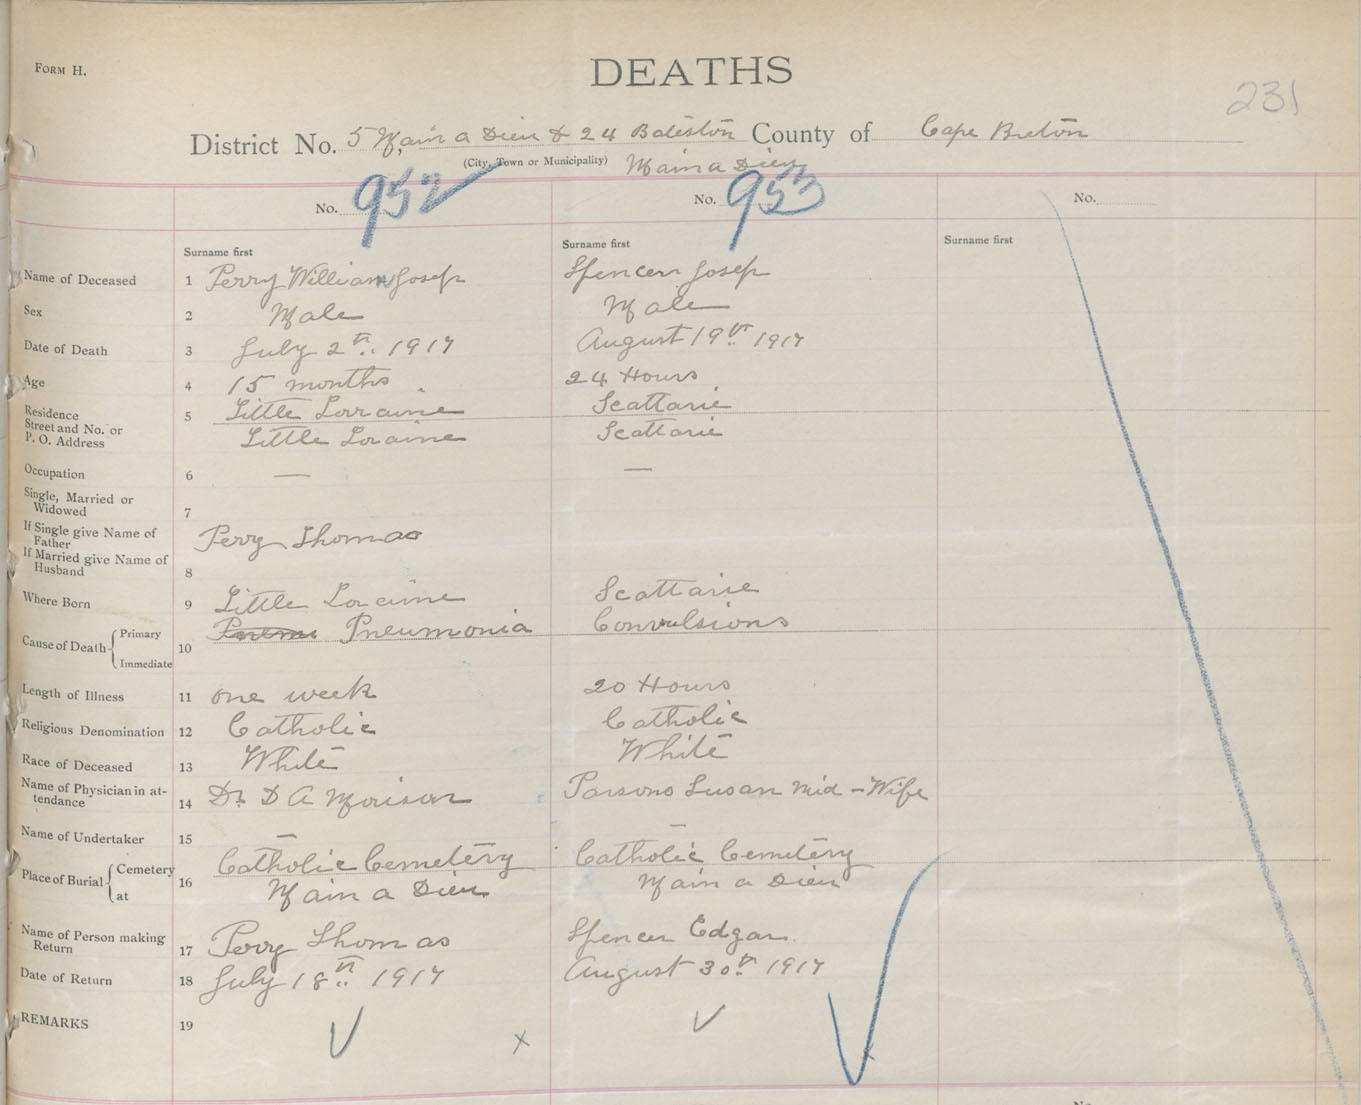 FORM H.
DEATHS
231
District No. 5 Main a Dieu & 24 Bateston County of Cape Breton
(City, Town or Municipality) Main a Dieu
No. 952 No. 953 No.
Surname first Surname first Surname first
Name of Deceased 1 Perry William Josep Spencer Josep
Sex 2 Male Male
Date of Death 3 July 2th 1917 August 19th 1917
Age 4 15 months. 24 Hours
Residence 5 Little Lorraine Scattarie
Street and No. or
P. O. Address Little Loraine Scattarie
Occupation 6 — —
Single, Married or
Widowed 7
If Single give Name of
Father Perry Thomas
If Married give Name of
Husband 8
Where Born 9 Little Loraine Scattarie
Cause of Death { Primary Pneumonia Convulsions
10
Immediate
Length of Illness 11 one week 20 Hours
Religious Denomination 12 Catholic Catholic
Race of Deceased 13 White White
Name of Physician in at-
tendance 14 Dr. D A Morison Parsons Susan Mid-Wife
Name of Undertaker 15 — —
Place of Burial { Cemetery 16 Catholic Cemetery Catholic Cemetery
at Main a Dieu Main a Dieu
Name of Person making
Return 17 Perry Thomas Spencer Edgar.
Date of Return 18 July 18th 1917 August 30th 1917
REMARKS 19
x x
No.